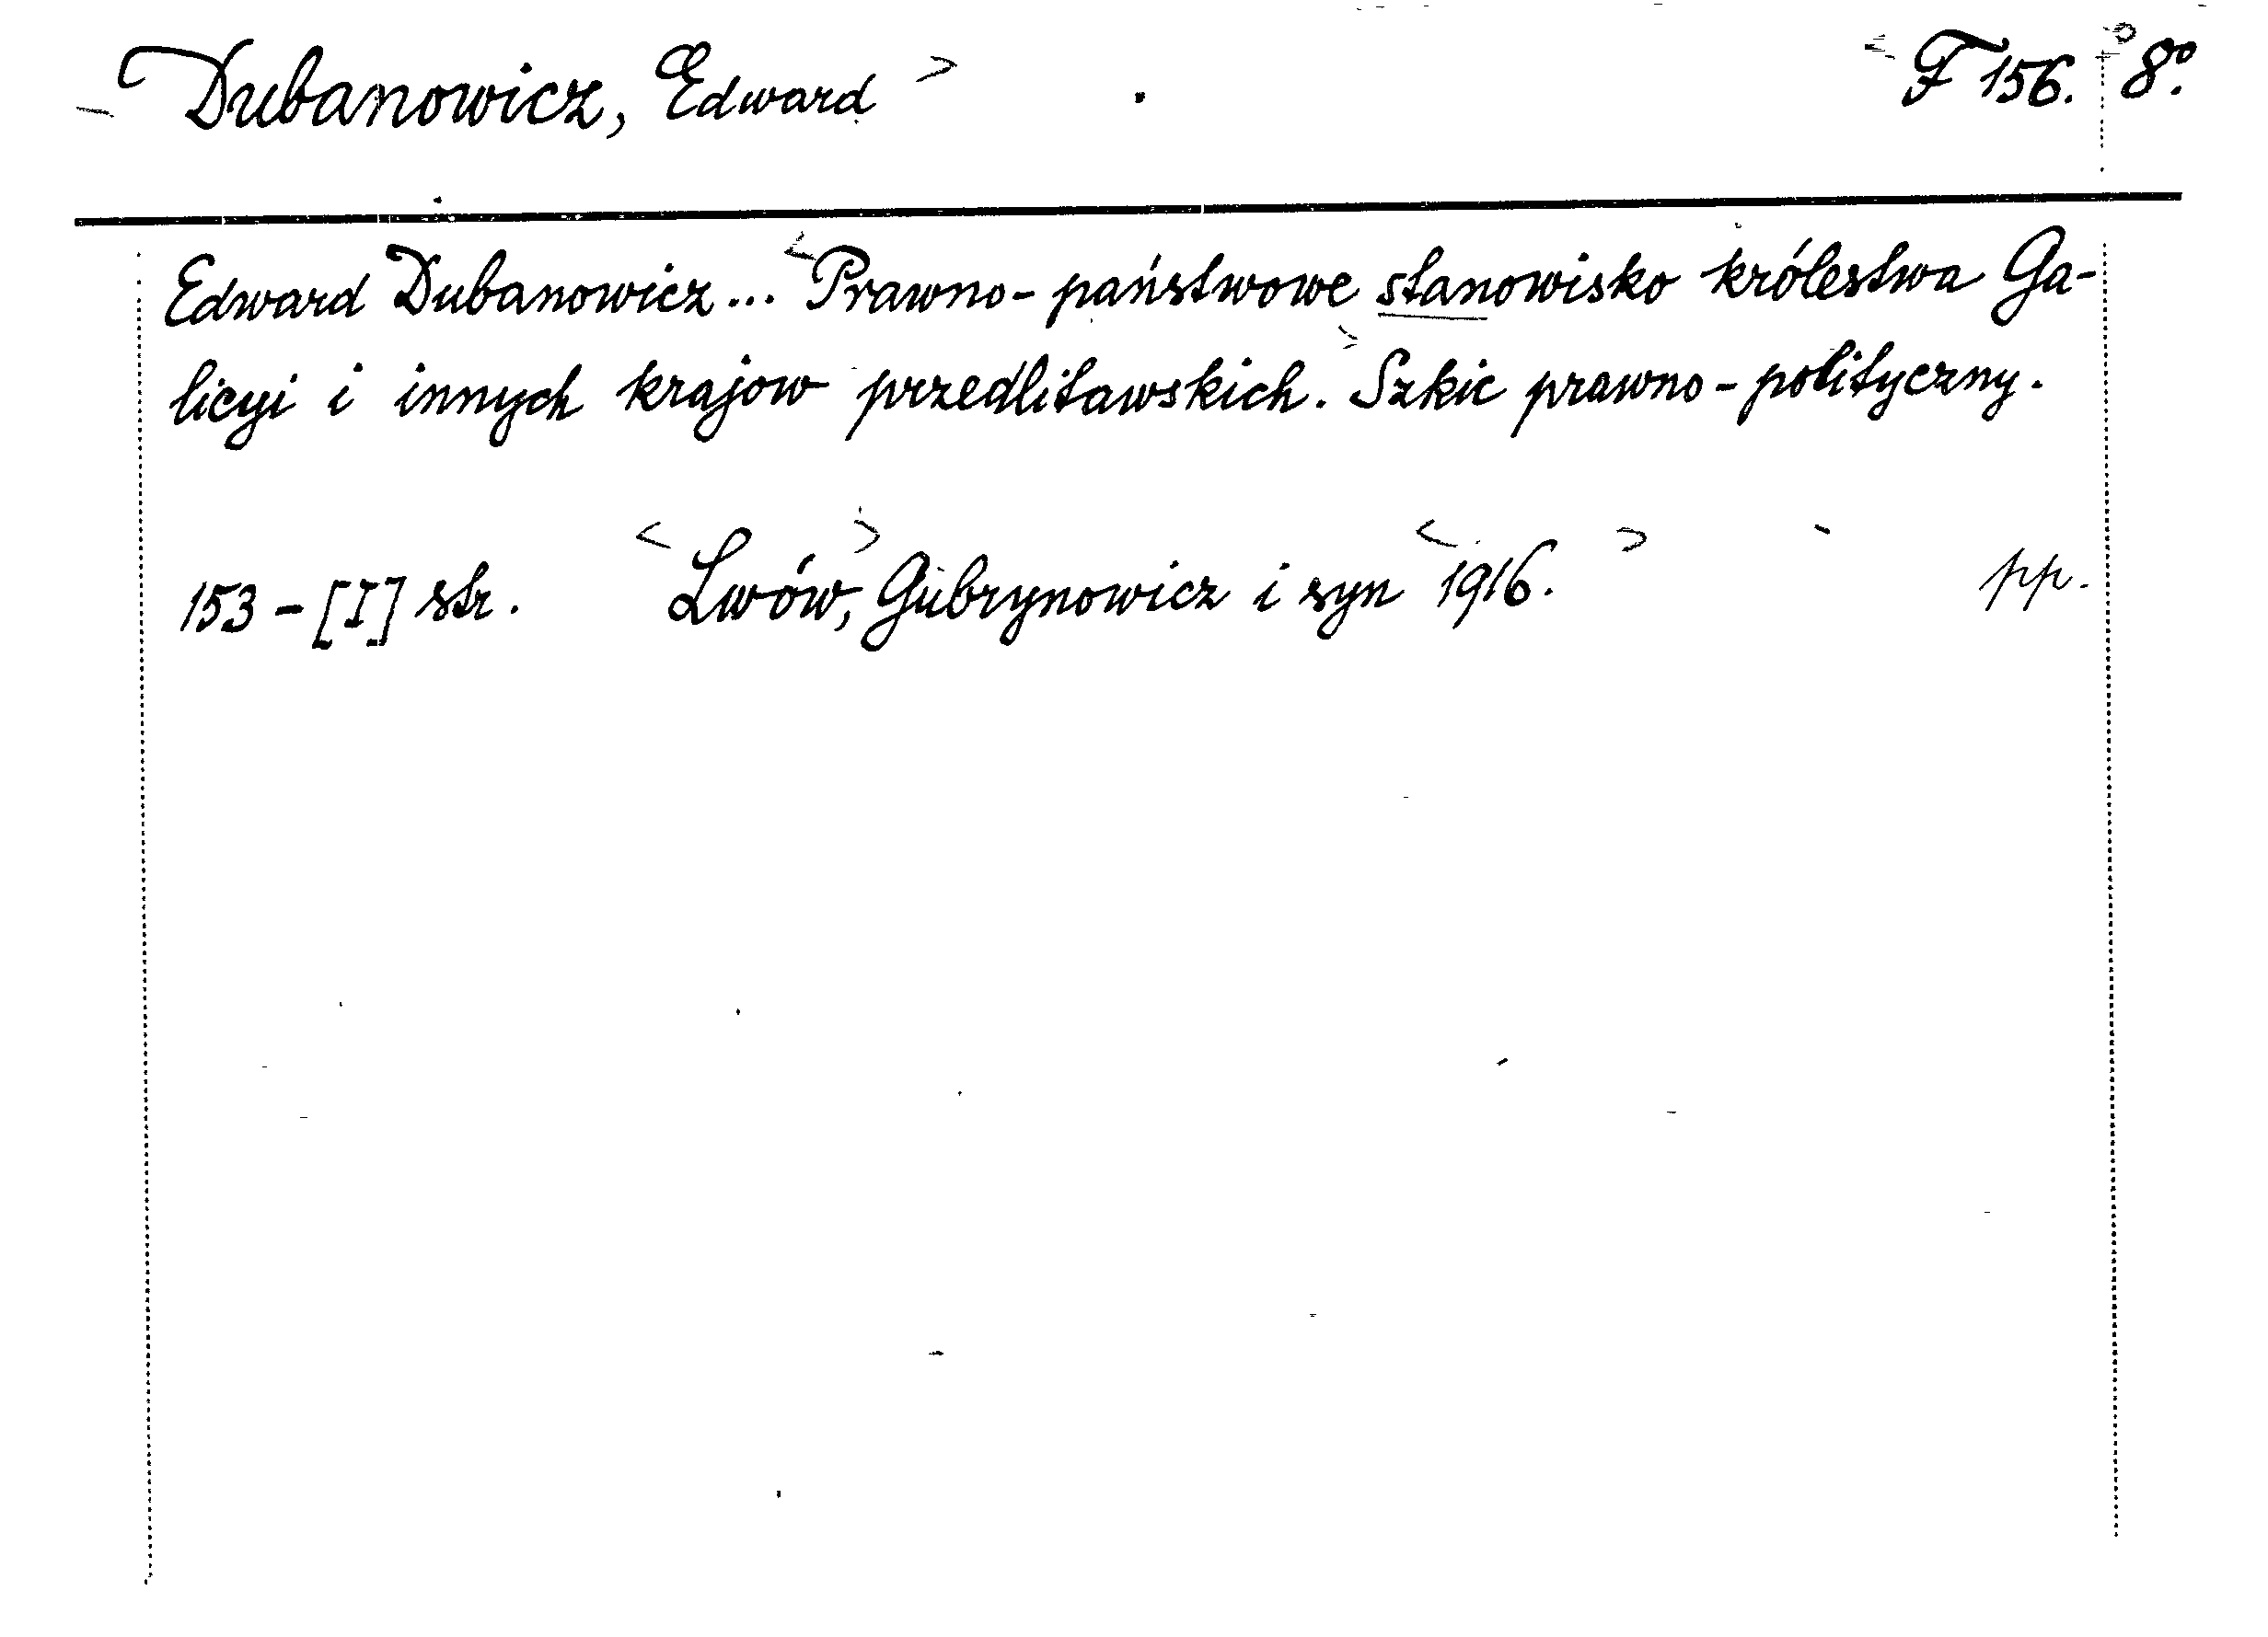 Dubanowicz, Edward F 156. 8º.
Edward Dubanowicz... Prawno-państwowe stanowisko królestwa Ga-
licyi i innych krajow przedlitawskich. Szkic prawno-polityczny.
153-[I] str. Lwów, Gubrynowicz i syn 1916. pp.